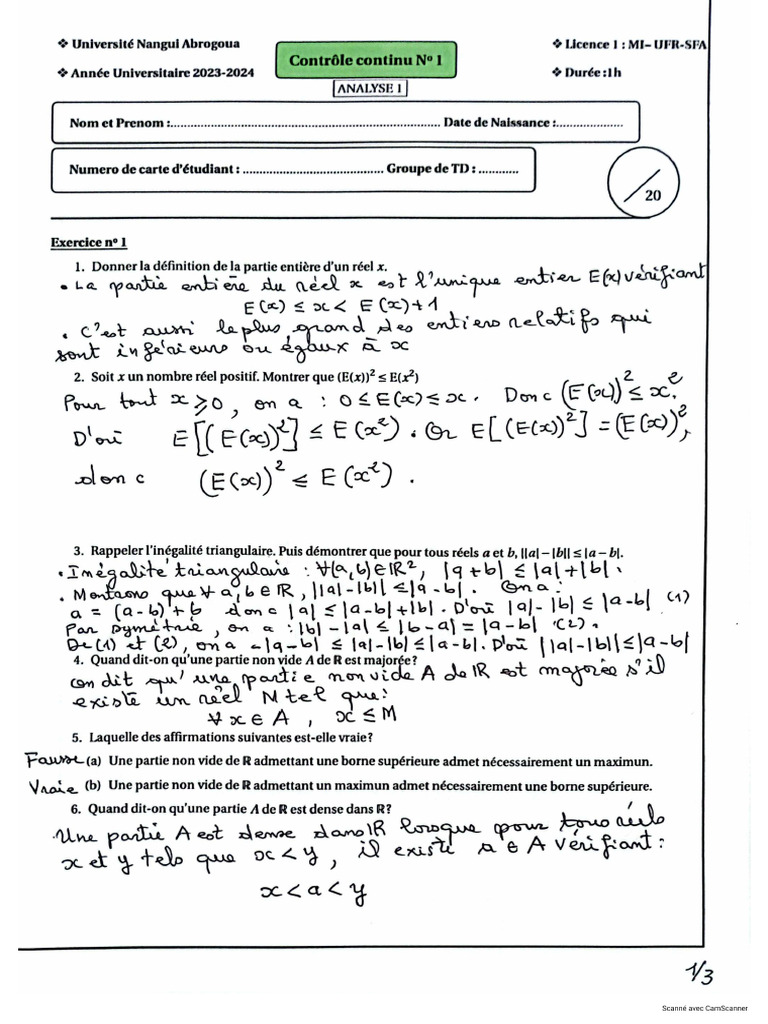 ❖ Université Nangui Abrogoua
❖ Licence 1 : MI– UFR-SFA
Contrôle continu Nº 1
❖ Année Universitaire 2023-2024
❖ Durée :1h
ANALYSE 1
Nom et Prenom :................................................................ Date de Naissance :...................
Numero de carte d'étudiant : ........................................ Groupe de TD : ............
/20
Exercice nº 1
1. Donner la définition de la partie entière d'un réel x.
• La partie entière du réel x est l'unique entier E(x) vérifiant
E(x) ≤ x < E(x)+1
• C'est aussi le plus grand des entiers relatifs qui
sont inférieurs ou égaux à x
2. Soit x un nombre réel positif. Montrer que (E(x))² ≤ E(x²)
Pour tout x ⩾ 0, on a : 0 ≤ E(x) ≤ x. Donc (E(x))² ≤ x².
D'où E[(E(x))²] ≤ E(x²). Or E[(E(x))²] = (E(x))²,
donc (E(x))² ≤ E(x²).
3. Rappeler l'inégalité triangulaire. Puis démontrer que pour tous réels a et b, ||a| – |b|| ≤ |a – b|.
• Inégalité triangulaire : ∀(a,b)∈ℝ², |a+b| ≤ |a|+|b|.
• Montrons que ∀ a, b ∈ ℝ, ||a|-|b|| ≤ |a-b|. On a :
a = (a-b)+b donc |a| ≤ |a-b|+|b|. D'où |a|-|b| ≤ |a-b| (1)
Par symétrie, on a : |b|-|a| ≤ |b-a| = |a-b| (2).
De (1) et (2), on a -|a-b| ≤ |a|-|b| ≤ |a-b|. D'où ||a|-|b|| ≤ |a-b|
4. Quand dit-on qu'une partie non vide A de R est majorée?
On dit qu'une partie non vide A de ℝ est majorée s'il
existe un réel M tel que:
∀ x ∈ A , x ≤ M
5. Laquelle des affirmations suivantes est-elle vraie?
Fausse (a) Une partie non vide de R admettant une borne supérieure admet nécessairement un maximun.
Vraie (b) Une partie non vide de R admettant un maximun admet nécessairement une borne supérieure.
6. Quand dit-on qu'une partie A de R est dense dans R?
Une partie A est dense dans ℝ lorsque pour tous réels
x et y tels que x < y, il existe a ∈ A vérifiant :
x < a < y
1/3
Scanné avec CamScanner